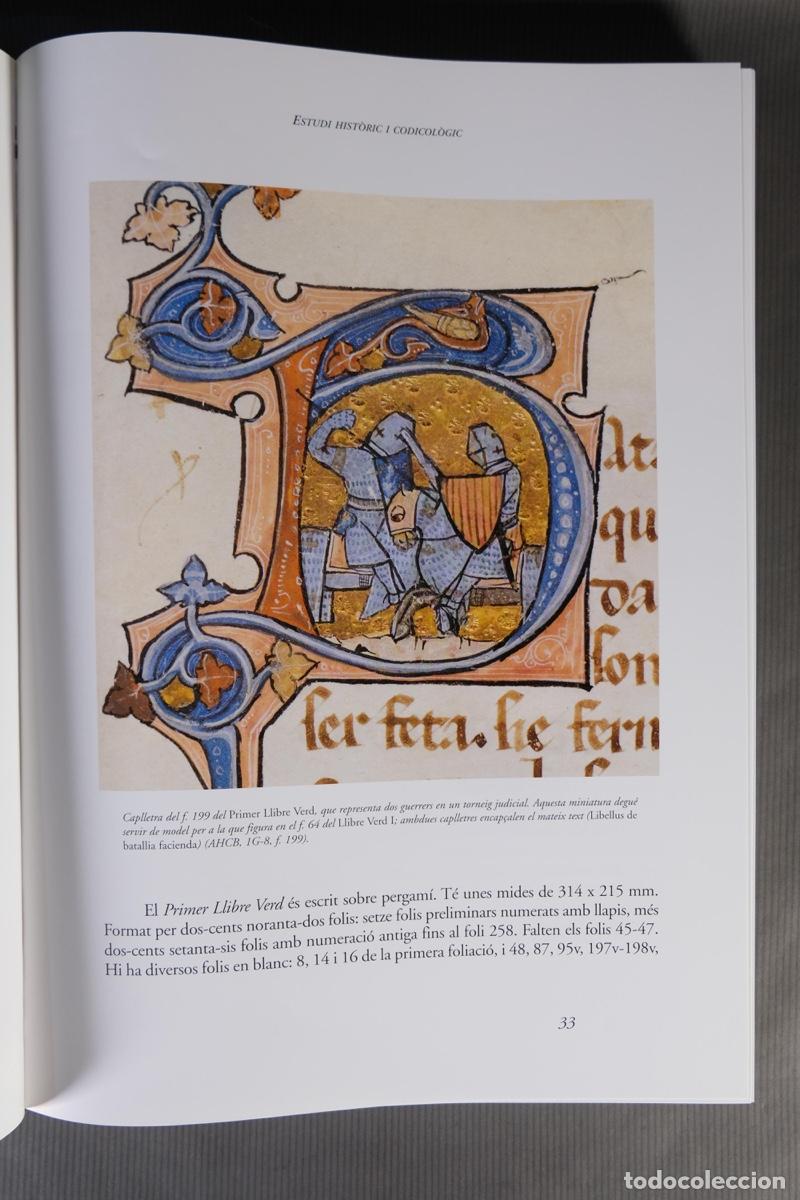 ESTUDI HISTÒRIC I CODICOLÒGIC
at
qu
da
son
ser feta. he ferm
Caplletra del f. 199 del Primer Llibre Verd, que representa dos guerrers en un torneig judicial. Aquesta miniatura degué
servir de model per a la que figura en el f. 64 del Llibre Verd I; ambdues caplletres encapçalen el mateix text (Libellus de
batallia facienda) (AHCB, 1G-8, f. 199).
El Primer Llibre Verd és escrit sobre pergamí. Té unes mides de 314 x 215 mm.
Format per dos-cents noranta-dos folis: setze folis preliminars numerats amb llapis, més
dos-cents setanta-sis folis amb numeració antiga fins al foli 258. Falten els folis 45-47.
Hi ha diversos folis en blanc: 8, 14 i 16 de la primera foliació, i 48, 87, 95v, 197v-198v,
33
todocoleccion